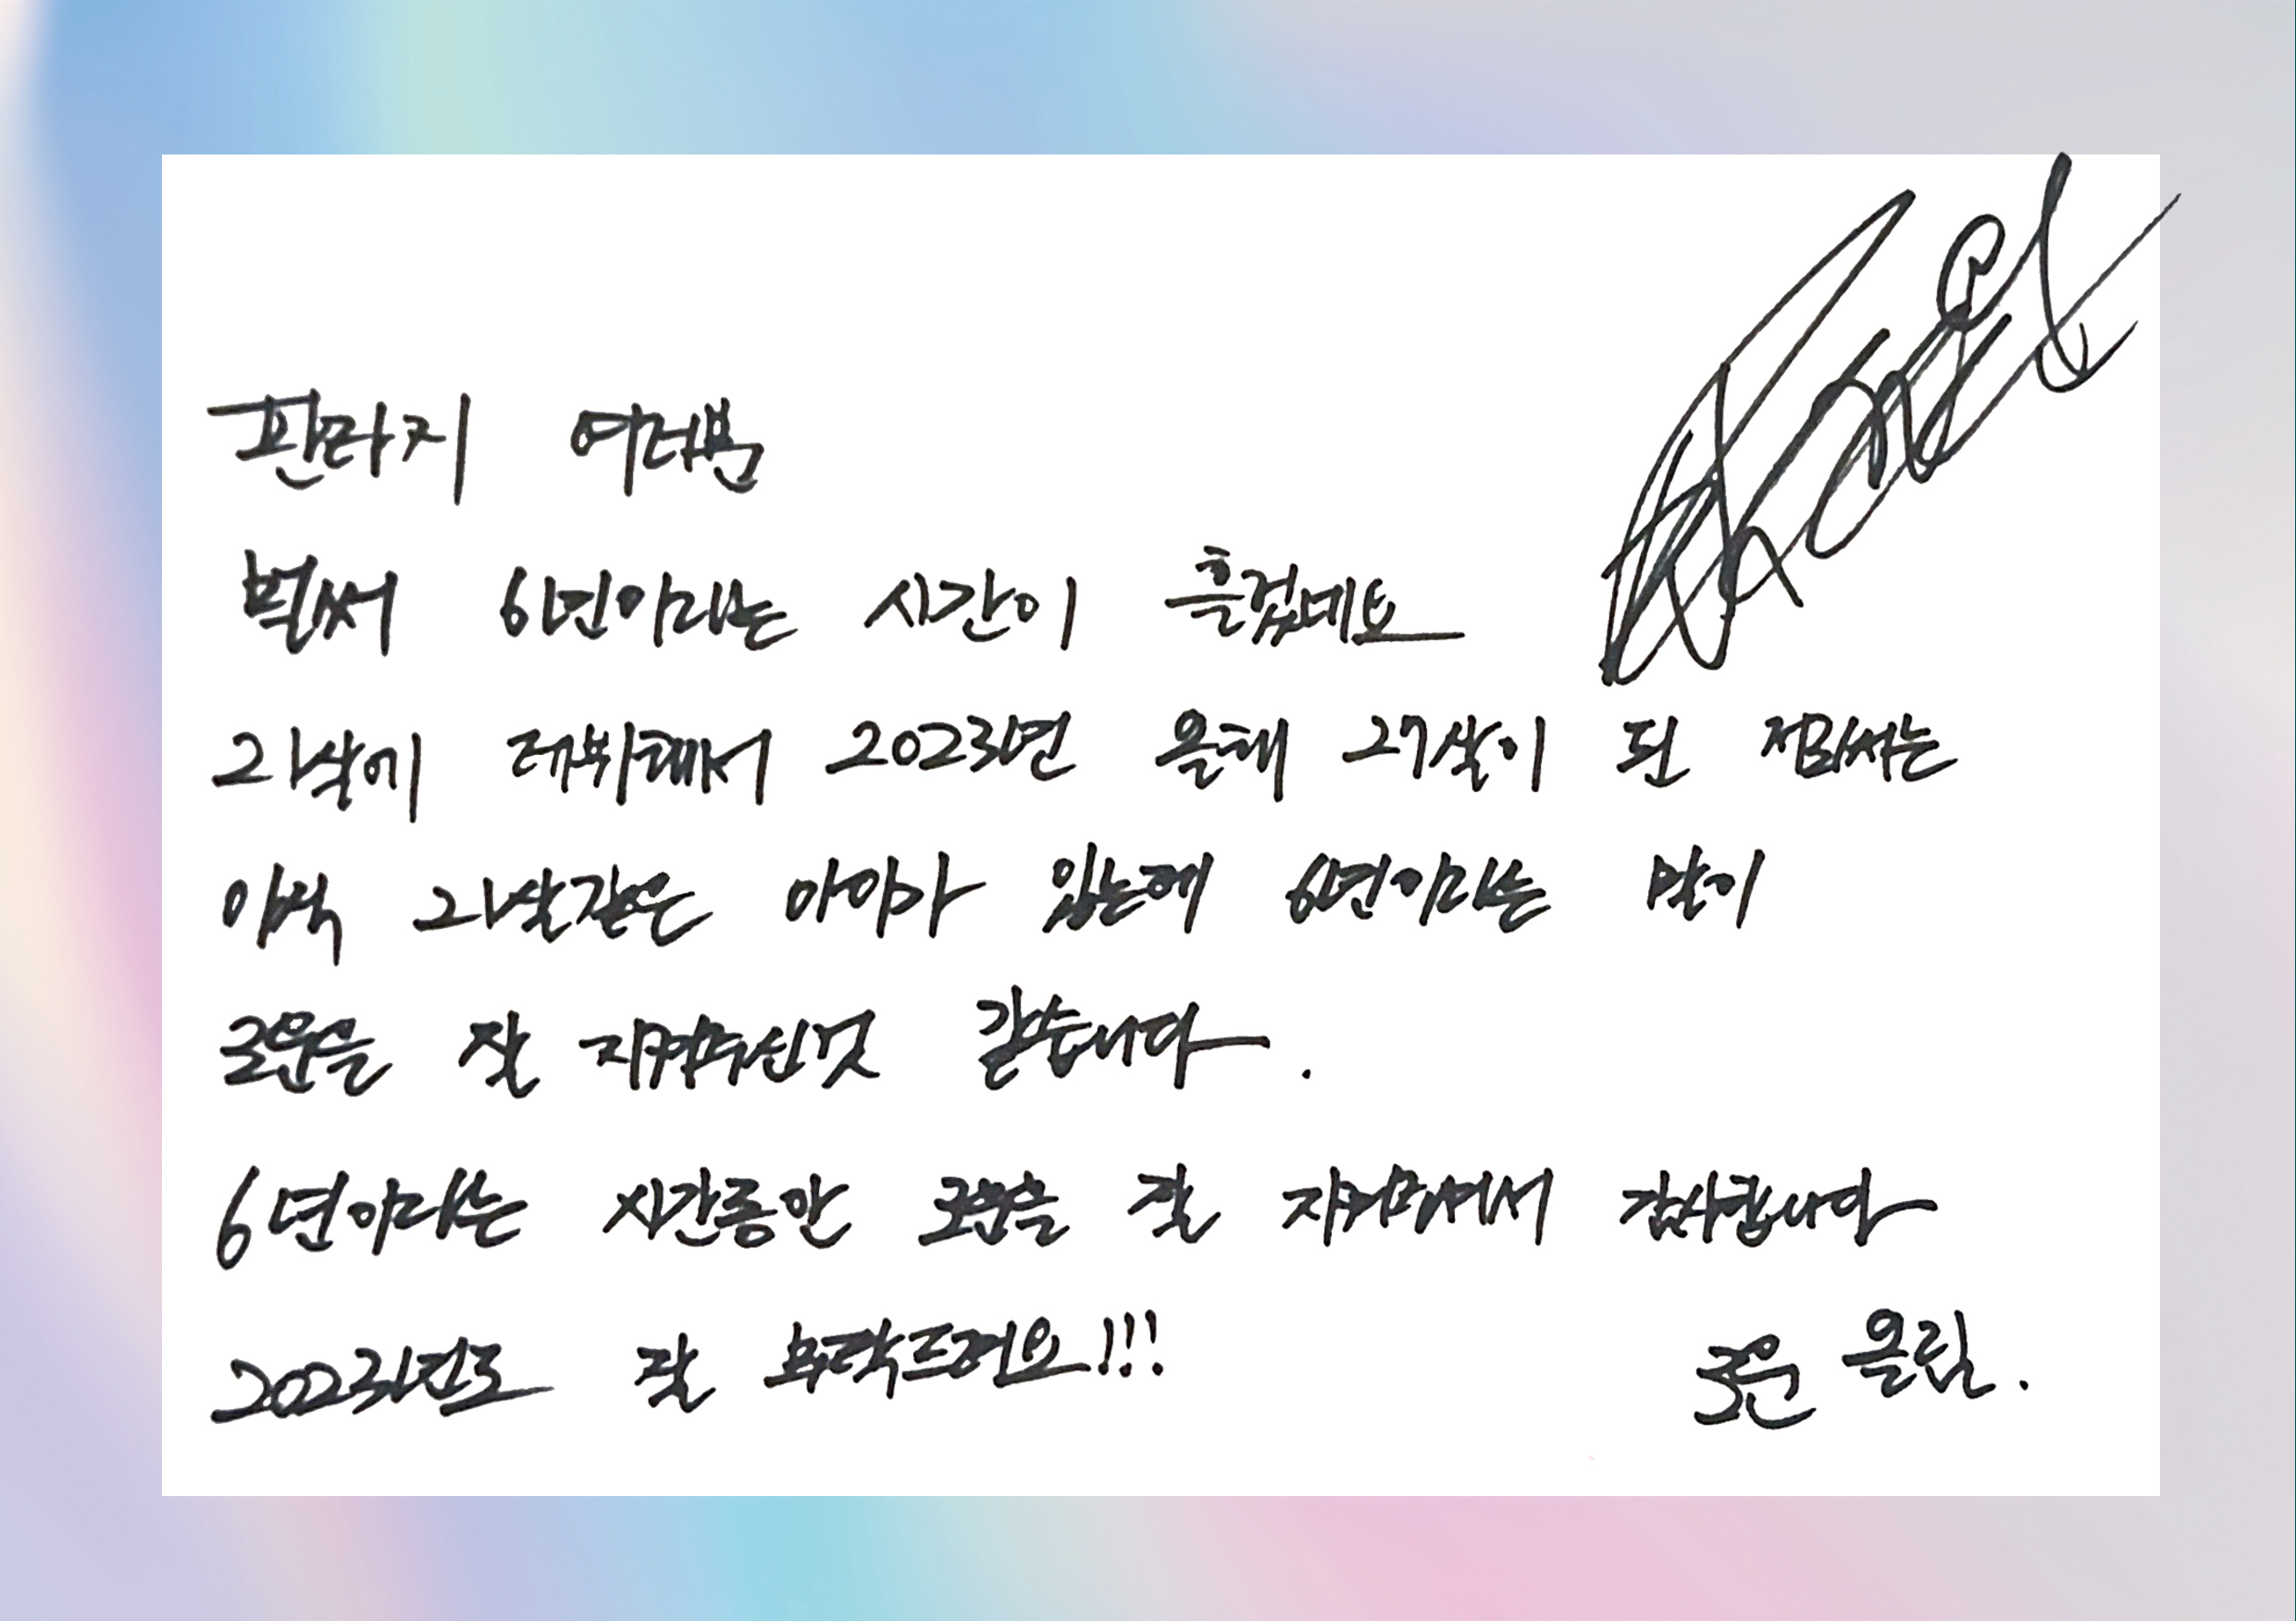 판타지 여러분
벌써 6년이라는 시간이 흘렀네요
21살에 데뷔해서 2023년 올해 27살이 된 점에서는
아직 21살같은 아이가 있는데 6년이라는 말이
로운을 잘 지켜주신것 같습니다.
6년이라는 시간동안 로운을 잘 지켜봐주셔서 감사합니다
2023년도 잘 부탁드려요!!! 로운 올림.